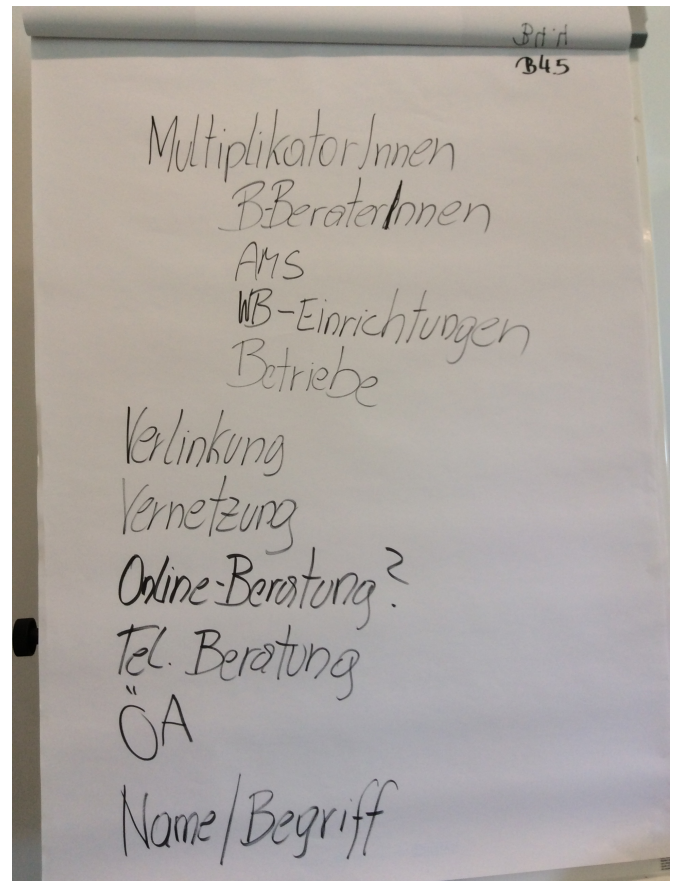 B45
MultiplikatorInnen
B-BeraterInnen
AMS
WB-Einrichtungen
Betriebe
Verlinkung
Vernetzung
Online-Beratung?
Tel. Beratung
ÖA
Name/Begriff